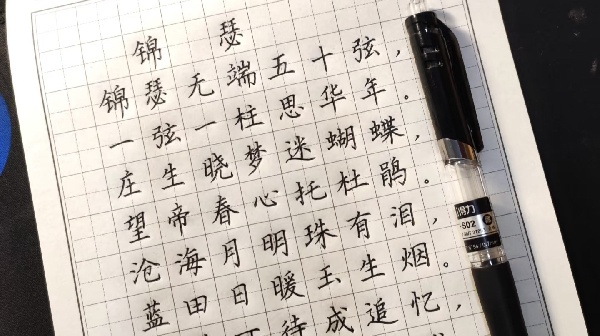 锦瑟
锦瑟无端五十弦，
一弦一柱思华年。
庄生晓梦迷蝴蝶，
望帝春心托杜鹃。
沧海月明珠有泪，
蓝田日暖玉生烟。
待成追忆，
得力
S02